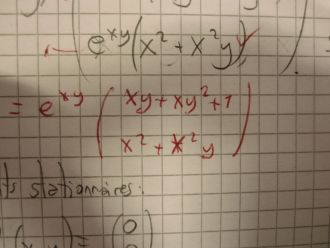 e^xy(x² + x²y)
= e^xy ( xy + xy² + 1
x² + x²y )
stationnaires:
= ( 0